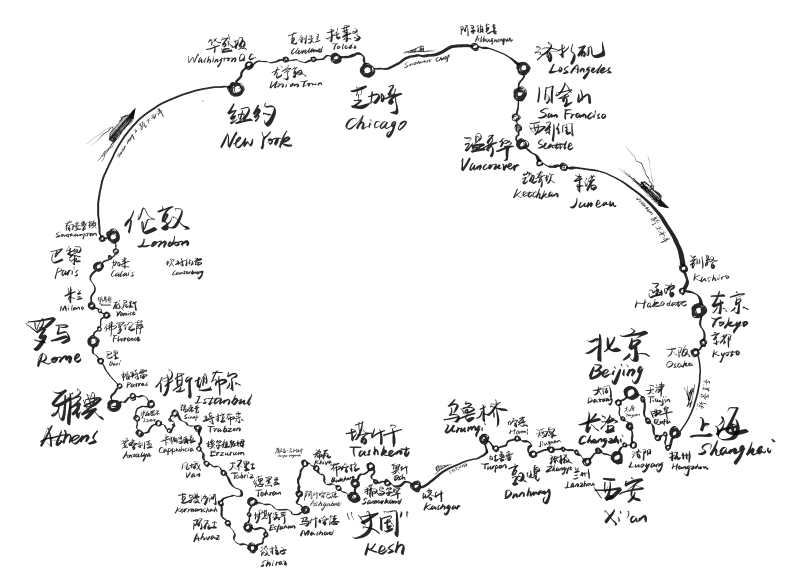 华盛顿
Washington D.C.
克利夫兰
Cleveland
托莱多
Toledo
尤宁敦
Union Town
纽约
New York
芝加哥
Chicago
Southwest Chief
阿尔伯克基
Albuquerque
洛杉矶
Los Angeles
旧金山
San Francisco
西雅图
Seattle
温哥华
Vancouver
凯奇坎
Ketchikan
朱诺
Juneau
钏路
Kushiro
函馆
Hakodate
东京
Tokyo
京都
Kyoto
大阪
Osaka
上海
Shanghai
杭州
Hangzhou
曲阜
Qufu
天津
Tianjin
北京
Beijing
大同
Datong
长治
Changzhi
洛阳
Luoyang
西安
Xi'an
兰州
Lanzhou
张掖
Zhangye
敦煌
Dunhuang
哈密
Hami
吐鲁番
Turpan
乌鲁木齐
Urumqi
喀什
Kashgar
塔什干
Tashkent
撒马尔罕
Samarkand
布哈拉
Bukhara
"史国"
Kesh
希瓦
Khiva
阿什哈巴德
Ashgabat
马什哈德
Mashad
德黑兰
Tehran
伊斯法罕
Esfahan
设拉子
Shiraz
阿瓦士
Ahvaz
克尔曼沙阿
Kermanshah
大不里士
Tabriz
凡城
Van
埃尔祖鲁姆
Erzurum
特拉布宗
Trabzon
卡帕多西亚
Cappadocia
伊斯坦布尔
Istanbul
安塔利亚
Antalya
雅典
Athens
帕特雷
Patras
巴里
Bari
罗马
Rome
佛罗伦萨
Florence
威尼斯
Venice
米兰
Milano
巴黎
Paris
加来
Calais
坎特伯雷
Canterbury
伦敦
London
南安普顿
Southampton